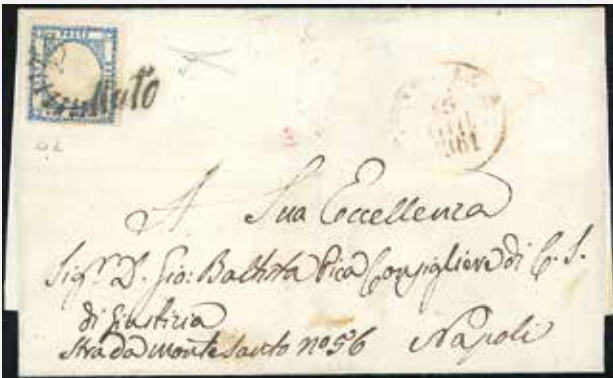 POSTE
Annullato
GIU
1861
A Sua Eccellenza
Sigr. D. Gio: Battista Pica Consigliere di C. S.
di Giustizia
Strada Monte Santo no. 56 Napoli